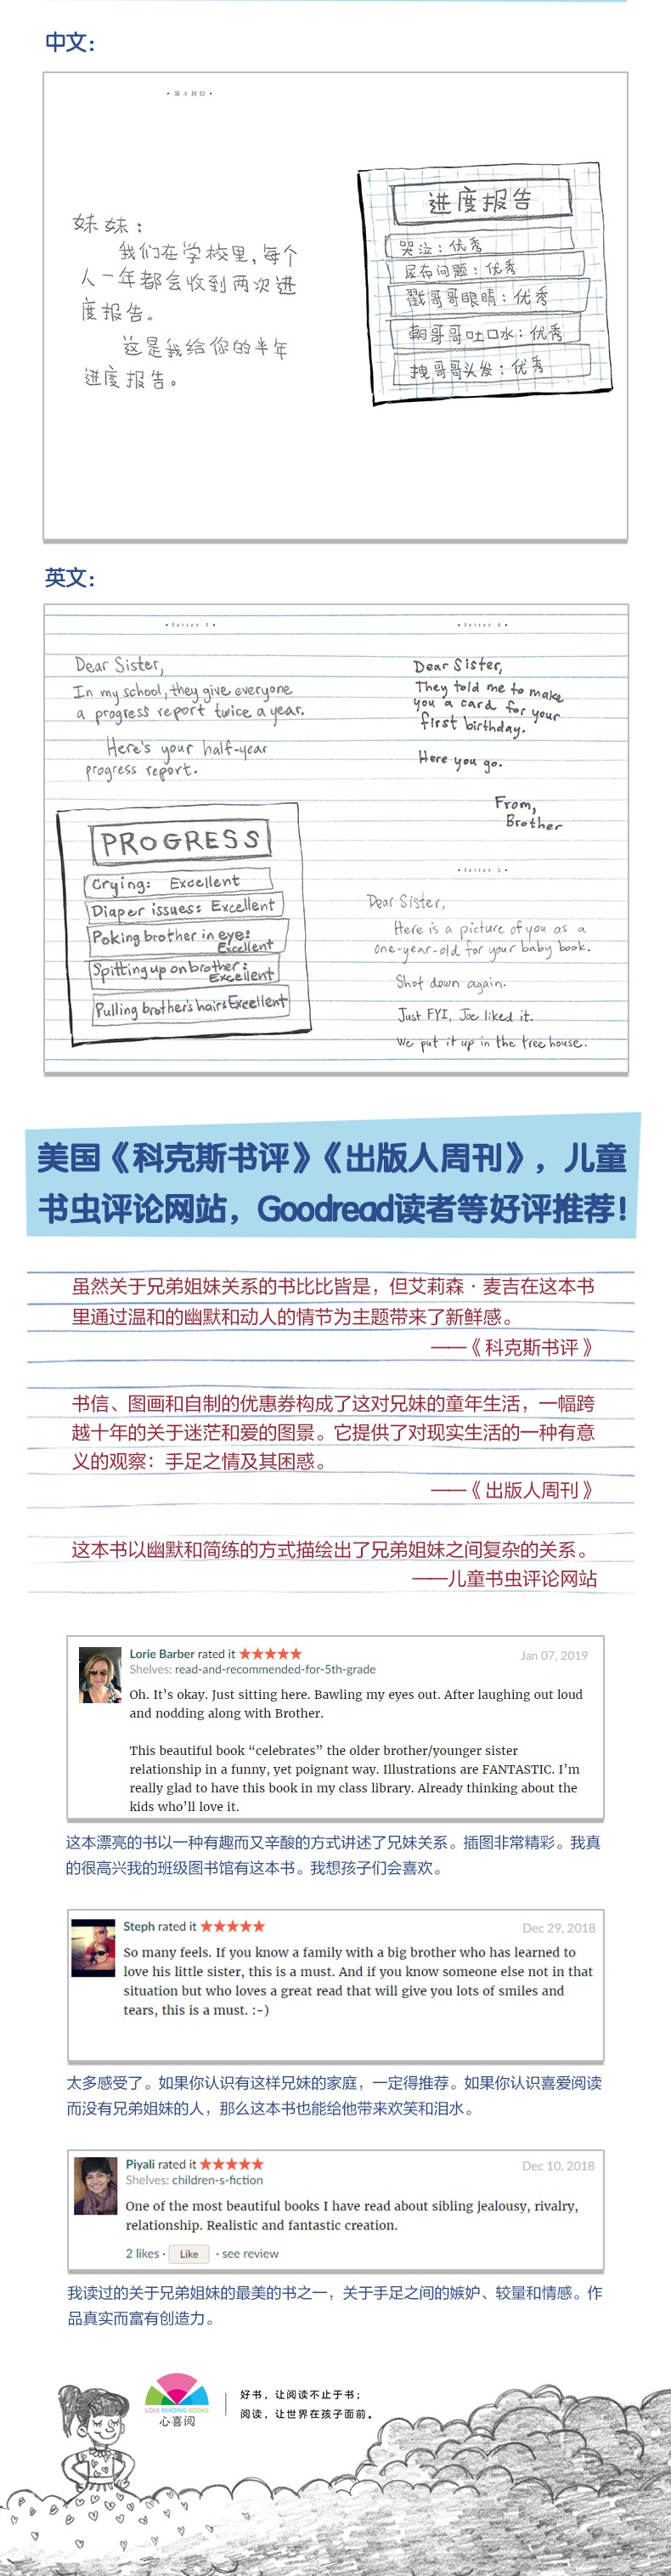 中文：
• 第 3 封信 •
妹妹：
我们在学校里，每个
人一年都会收到两次进
度报告。
这是我给你的半年
进度报告。
进度报告
哭泣：优秀
尿布问题：优秀
戳哥哥眼睛：优秀
朝哥哥吐口水：优秀
拽哥哥头发：优秀
英文：
• letter 3 •
Dear Sister,
In my school, they give everyone
a progress report twice a year.
Here's your half-year
progress report.
PROGRESS
Crying: Excellent
Diaper issues: Excellent
Poking brother in eye:
Excellent
Spitting up on brother:
Excellent
Pulling brother's hair: Excellent
• letter 4 •
Dear Sister,
They told me to make
you a card for your
first birthday.
Here you go.
From,
Brother
• letter 5 •
Dear Sister,
Here is a picture of you as a
one-year-old for your baby book.
Shot down again.
Just FYI, Joe liked it.
We put it up in the tree house.
美国《科克斯书评》《出版人周刊》，儿童
书虫评论网站，Goodread读者等好评推荐！
虽然关于兄弟姐妹关系的书比比皆是，但艾莉森·麦吉在这本书
里通过温和的幽默和动人的情节为主题带来了新鲜感。
——《科克斯书评》
书信、图画和自制的优惠券构成了这对兄妹的童年生活，一幅跨
越十年的关于迷茫和爱的图景。它提供了对现实生活的一种有意
义的观察：手足之情及其困惑。
——《出版人周刊》
这本书以幽默和简练的方式描绘出了兄弟姐妹之间复杂的关系。
——儿童书虫评论网站
Lorie Barber rated it ★★★★★ Jan 07, 2019
Shelves: read-and-recommended-for-5th-grade
Oh. It’s okay. Just sitting here. Bawling my eyes out. After laughing out loud
and nodding along with Brother.
This beautiful book “celebrates” the older brother/younger sister
relationship in a funny, yet poignant way. Illustrations are FANTASTIC. I’m
really glad to have this book in my class library. Already thinking about the
kids who’ll love it.
这本漂亮的书以一种有趣而又辛酸的方式讲述了兄妹关系。插图非常精彩。我真
的很高兴我的班级图书馆有这本书。我想孩子们会喜欢。
Steph rated it ★★★★★ Dec 29, 2018
So many feels. If you know a family with a big brother who has learned to
love his little sister, this is a must. And if you know someone else not in that
situation but who loves a great read that will give you lots of smiles and
tears, this is a must. :-)
太多感受了。如果你认识有这样兄妹的家庭，一定得推荐。如果你认识喜爱阅读
而没有兄弟姐妹的人，那么这本书也能给他带来欢笑和泪水。
Piyali rated it ★★★★★ Dec 10, 2018
Shelves: children-s-fiction
One of the most beautiful books I have read about sibling jealousy, rivalry,
relationship. Realistic and fantastic creation.
2 likes · Like · see review
我读过的关于兄弟姐妹的最美的书之一，关于手足之间的嫉妒、较量和情感。作
品真实而富有创造力。
LOVE READING BOOKS
心喜阅
好书，让阅读不止于书；
阅读，让世界在孩子面前。